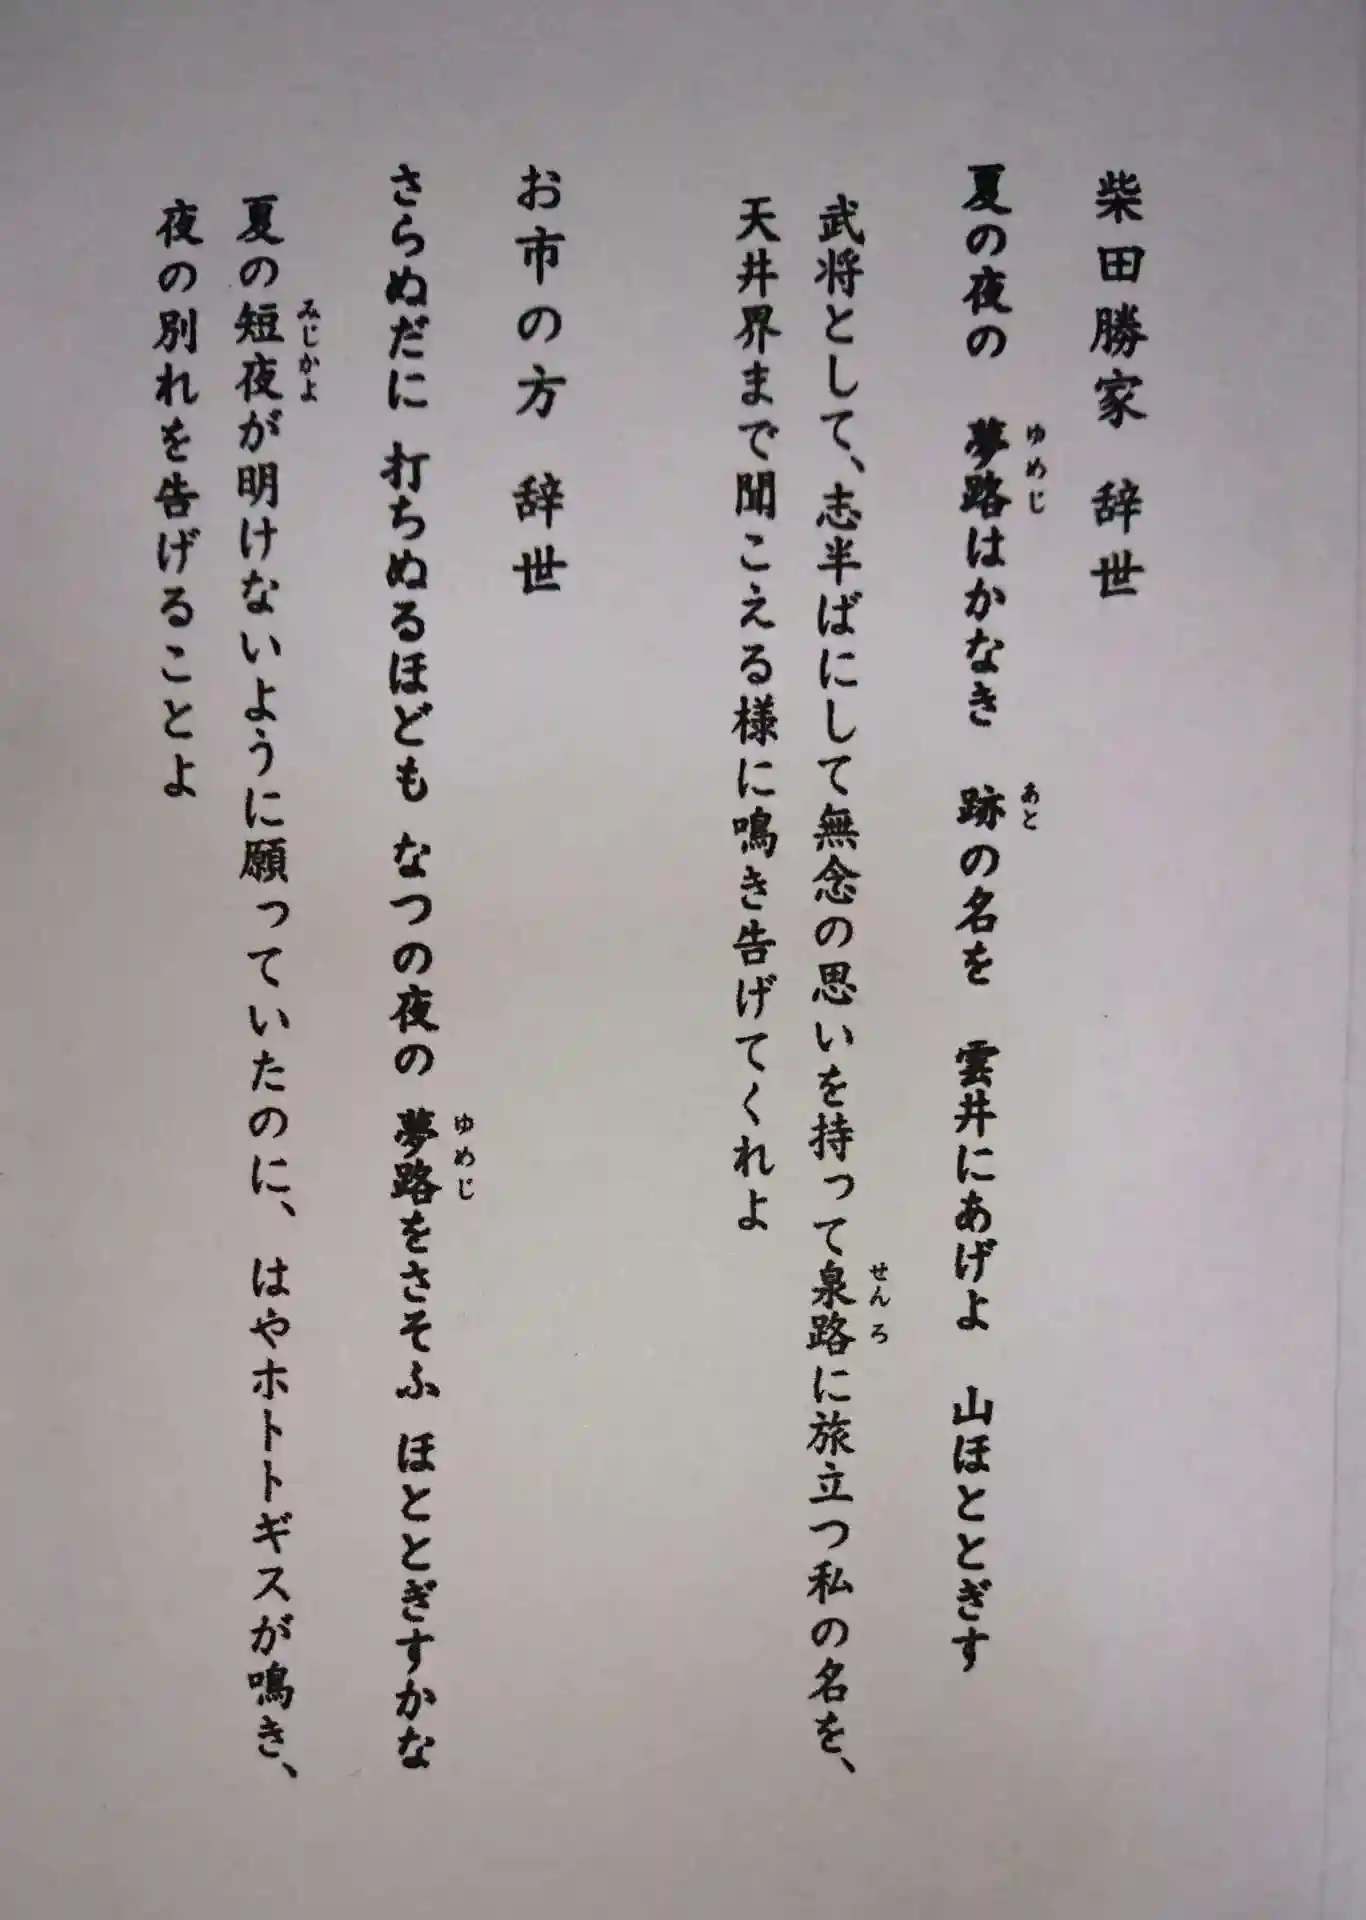 柴田勝家 辞世
夏の夜の 夢路はかなき 跡の名を 雲井にあげよ 山ほととぎす
ゆめじ
あと
武将として、志半ばにして無念の思いを持って泉路に旅立つ私の名を、
せんろ
天井界まで聞こえる様に鳴き告げてくれよ
お市の方 辞世
さらぬだに 打ちぬるほども なつの夜の 夢路をさそふ ほととぎすかな
ゆめじ
夏の短夜が明けないように願っていたのに、はやホトトギスが鳴き、
みじかよ
夜の別れを告げることよ